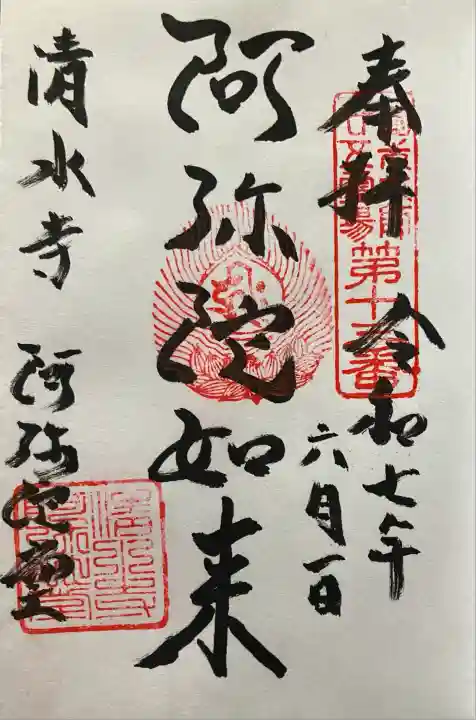 奉拝
令和七年
六月一日
第十三番
阿弥陀如来
清水寺
阿弥陀堂